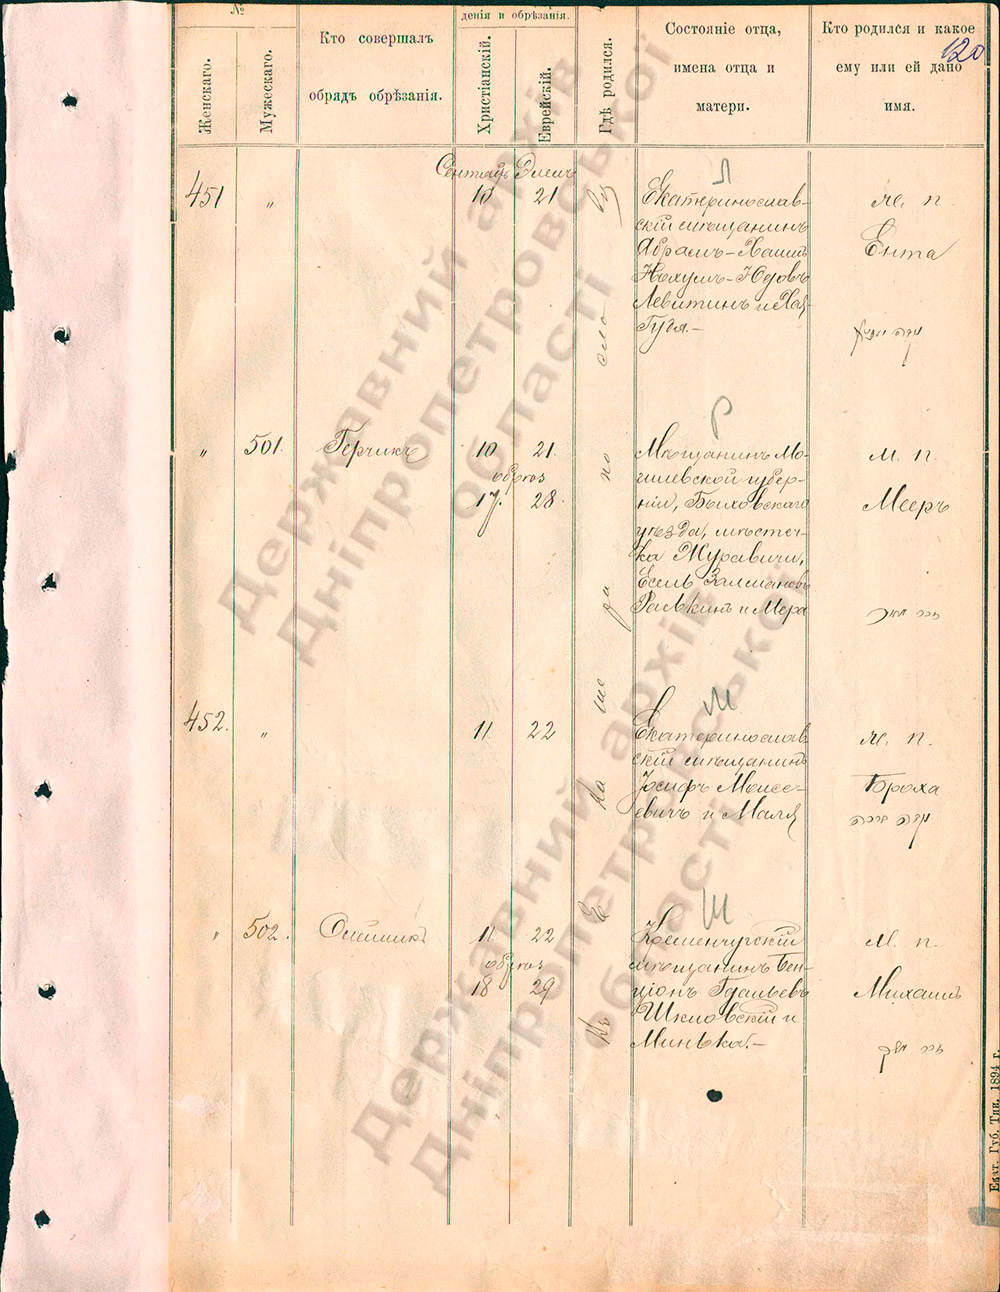 №
Женскаго.
Мужескаго.
Кто совершалъ
обрядъ обрѣзанія.
денія и обрѣзанія.
Христіанскій.
Еврейскій.
Гдѣ родился.
Состояніе отца,
имена отца и
матери.
Кто родился и какое
ему или ей дано
имя.
120
Сентябь Элелъ
451 " 10 21
Екатеринослав-
скій мѣщанинъ
Абрамъ-Хаимъ
Нахумъ-Юдовъ
Левитинъ и Хая
Гуга.-
Л
ж. п.
Ента
" 501. Герчикъ 10 21.
обрѣз
17. 28
Р
Мѣщанинъ Мо-
гилевской губер-
ніи, Быховскаго
уѣзда, мѣстеч-
ка Журавичи,
Есель Залмановъ
Ралькинъ и Мера
м. п.
Мееръ
452. " 11 22
М
Екатеринослав
скій мѣщанинъ
Іосифъ Моисе-
евичъ и Маля
ж. п.
Броха
מרה ברכה
" 502. Олейникъ 11 22
обрѣз
18 29
Ш
Кременчугскій
мѣщанинъ Бен-
ціонъ Гдальевъ
Шкловскій и
Минька.-
м. п.
Михаилъ
Екат. Губ. Тип. 1894 г.
Державний архів
Дніпропетровської
області
Державний архів
Дніпропетровської
області